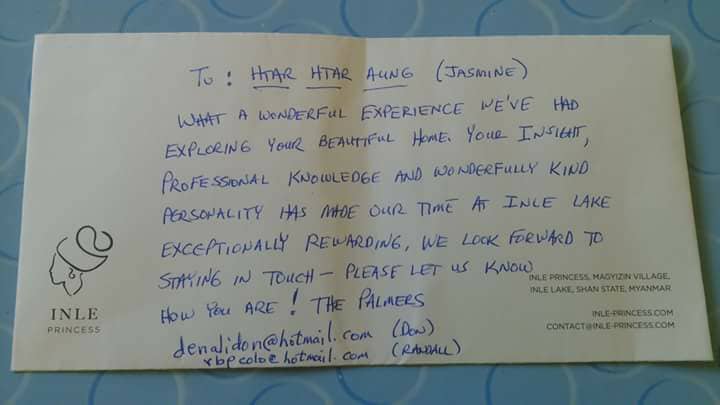 To: HTAR HTAR AUNG (JASMINE)
WHAT A WONDERFUL EXPERIENCE WE'VE HAD
EXPLORING YOUR BEAUTIFUL HOME. YOUR INSIGHT,
PROFESSIONAL KNOWLEDGE AND WONDERFULLY KIND
PERSONALITY HAS MADE OUR TIME AT INLE LAKE
EXCEPTIONALLY REWARDING, WE LOOK FORWARD TO
STAYING IN TOUCH — PLEASE LET US KNOW
HOW YOU ARE! THE PALMERS
denalidon@hotmail.com (DON)
rbpcolo@hotmail.com (RANDALL)
INLE
PRINCESS
INLE PRINCESS, MAGYIZIN VILLAGE,
INLE LAKE, SHAN STATE, MYANMAR
INLE-PRINCESS.COM
CONTACT@INLE-PRINCESS.COM